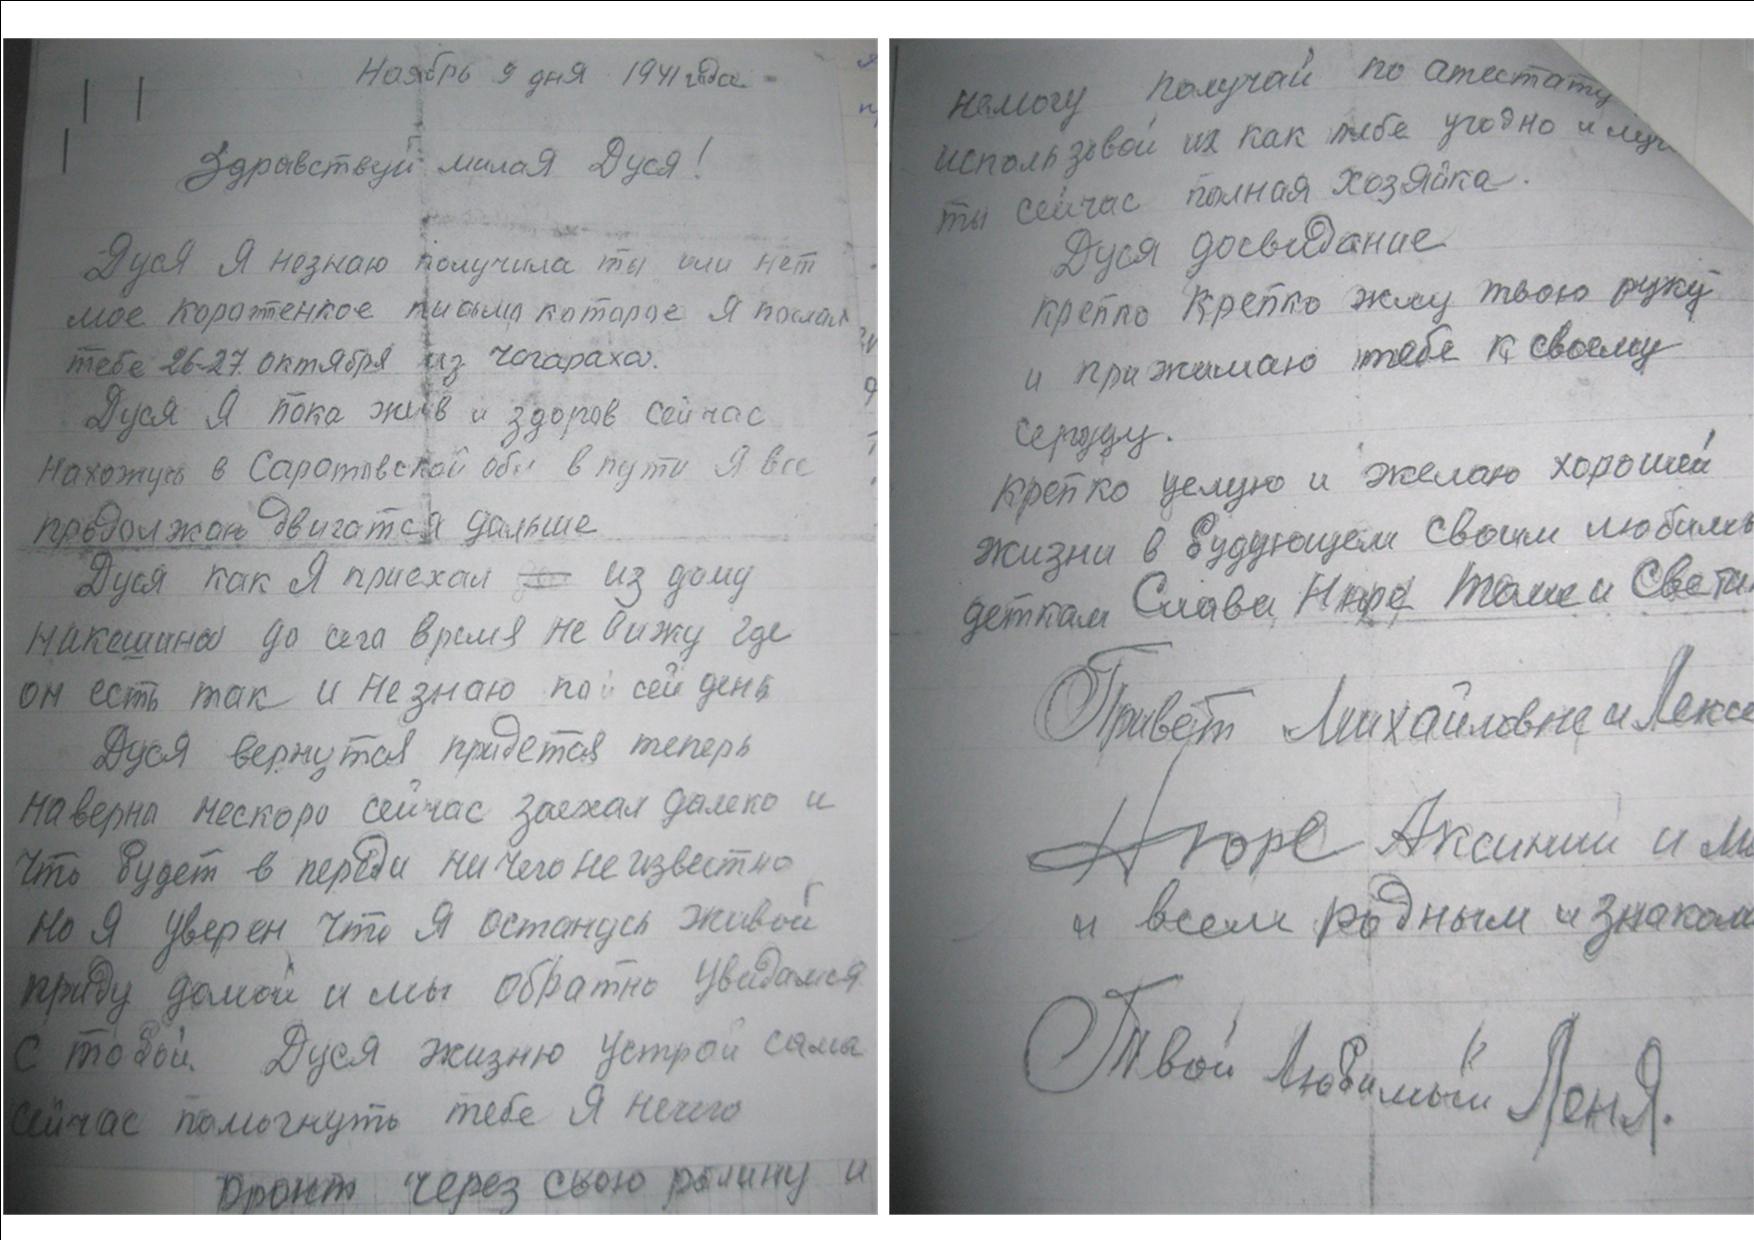 Ноябрь 9 дня 1941 года
Здравствуй милая Дуся!
Дуся Я незнаю получила ты или нет
мое коротенкое письмо которое Я послал
тебе 26-27 октября из
Дуся Я пока жив и здоров сейчас
нахожусь в Саратовской обл в пути Я все
продолжаю двигатся дальше
Дуся как Я приехал из дому
Никешина до сега время не вижу где
он есть так и не знаю по сей день
Дуся вернутся придется теперь
наверна нескоро сейчас заехал далеко и
что будет в переди ничего не известно
но Я уверен что Я останусь живой
приду домой и мы обратно увидамся
с тобой. Дуся жизню устрой сама
сейчас помогнуть тебе Я нечего
фронт через свою родину и
немогу получай по атестату
использовай их как тебе угодно и
ты сейчас полная хозяйка.
Дуся досвидание
крепко крепко жму твою руку
и прижимаю тебе к своему
серцу.
Крепко целую и желаю хорошей
жизни в будующем своим любимы
деткам Славе Нюре Томе и Свети
Привет Михайловне и Лексе
Нюре Аксинии и
и всем родным и знаком
Твой Любимый Леня.